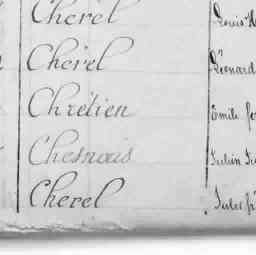 Cherel Louis
Chérel Léonard
Chrétien Emile
Chesnais Julien
Cherel Jules